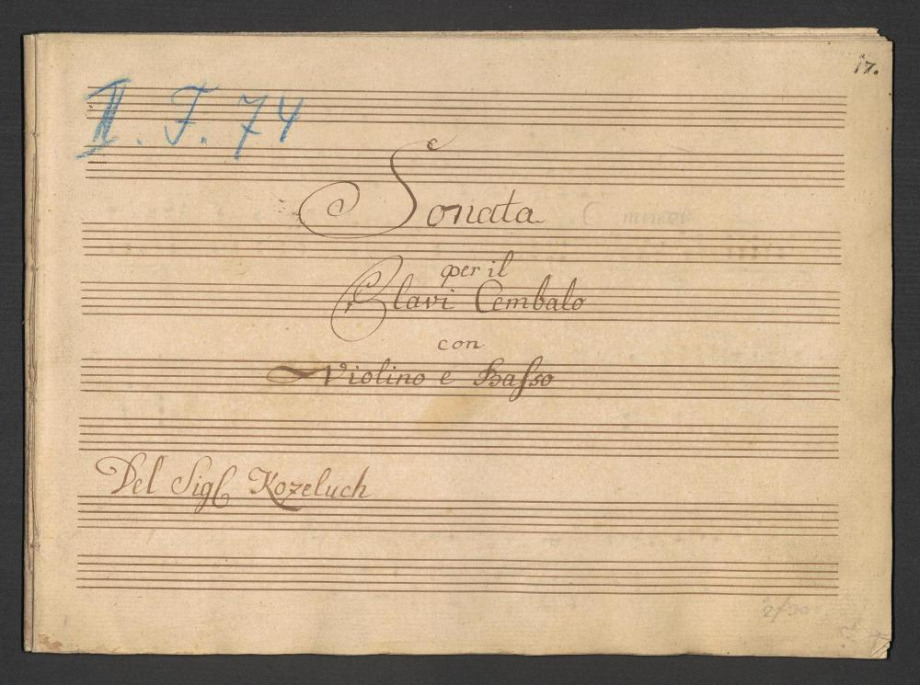 17.
II. F. 74
Sonata C minor
per il
Clavi Cembalo
con
Violino e Basso
Del Sigl Kozeluch